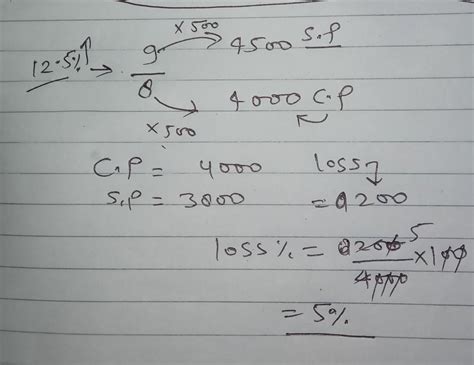 ×500
12.5%↑ → 9/8 → 4500 S.P
4000 C.P
×500
C.P = 4000 loss
S.P = 3800 = 200
loss% = 200/4000 × 100 5
= 5%